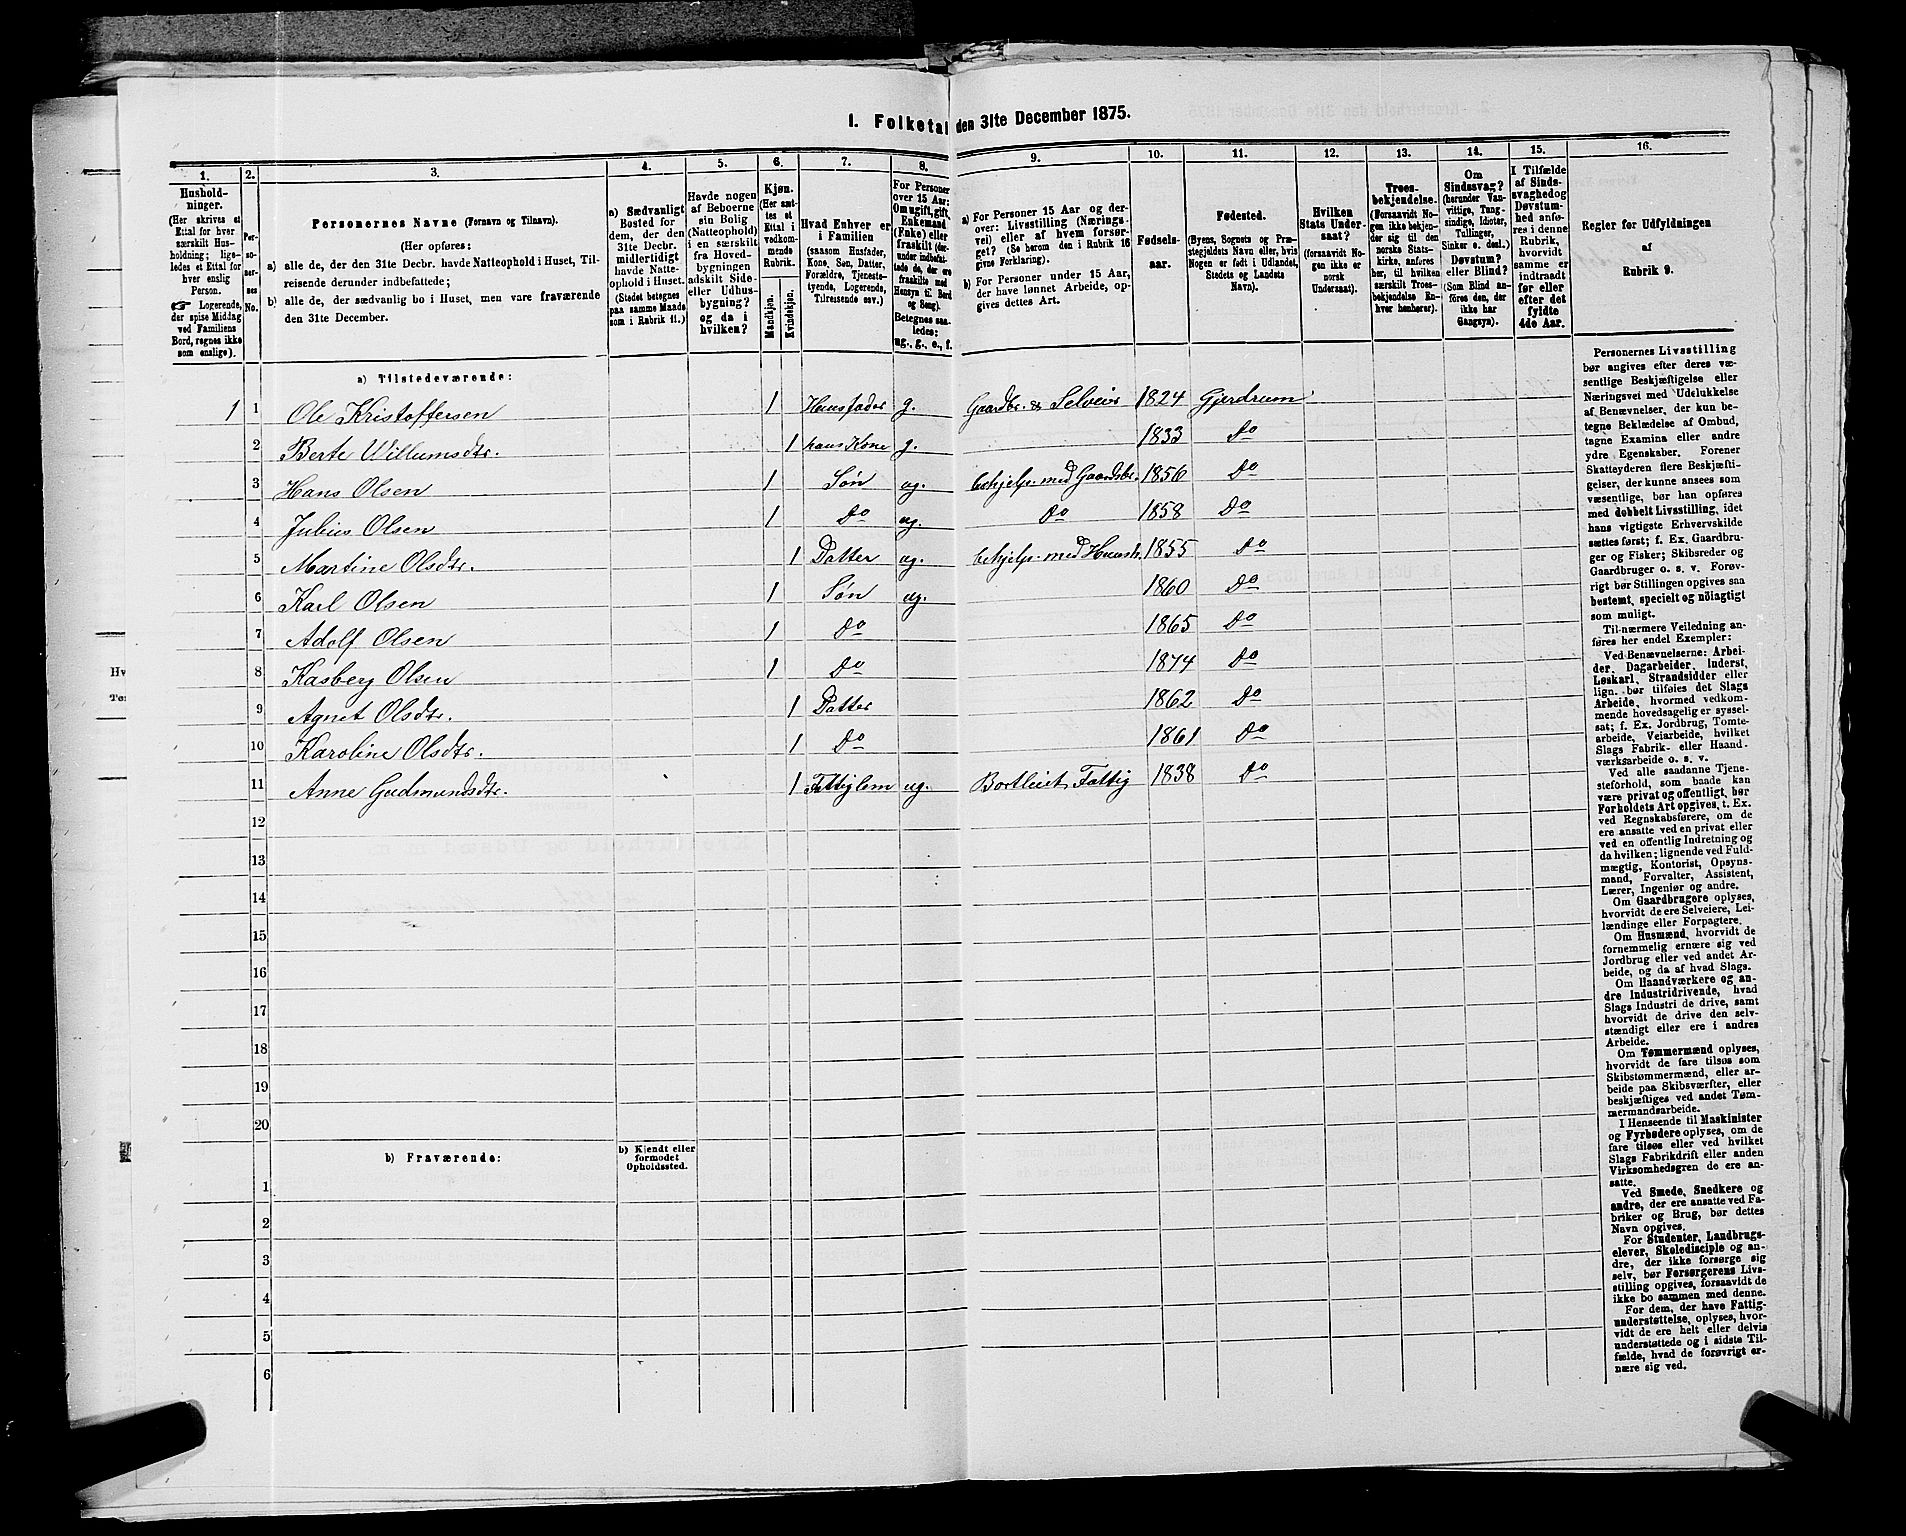 1. Folketal den 31te December 1875.
1.
2.
3.
4.
5.
6.
7.
8.
9.
10.
11.
12.
13.
14.
15.
16.
Hushold-
ninger.
(Her skrives et
Ettal for hver
særskilt Hus-
holdning; lige-
ledes et Ettal for
hver enslig
Person.
☞ Logerende,
der spise Middag
ved Familiens
Bord, regnes ikke
som enslige).
Per-
so-
ner-
nes
No.
Personernes Navne (Fornavn og Tilnavn).
(Her opføres:
a) alle de, der den 31te Decbr. havde Natteophold i Huset, Til-
reisende derunder indbefattede;
b) alle de, der sædvanlig bo i Huset, men vare fraværende
den 31te December.
a) Sædvanligt
Bosted for
dem, der den
31te Decbr.
midlertidigt
havde Natte-
ophold i Huset.
(Stedet betegnes
paa samme Maade
som i Rubrik 11.)
Havde nogen
af Beboerne
sin Bolig
(Natteophold)
i en særskilt
fra Hoved-
bygningen
adskilt Side-
eller Udhus-
bygning?
og da i
hvilken?
Kjøn.
(Her sæt-
tes et
Ettal i
vedkom-
mende
Rubrik.
Mandkjøn.
Kvindekjøn.
Hvad Enhver er
i Familien
(saasom Husfader,
Kone, Søn, Datter,
Forældre, Tjeneste-
tyende, Logerende,
Tilreisende osv.)
For Personer
over 15 Aar:
Om ugift, gift,
Enkemand
(Enke) eller
fraskilt (der-
under indbefat-
tede de, der ere
fraskilte med
Hensyn til Bord
og Seng).
Betegnes saa-
ledes:
ug., g., e., f.
a) For Personer 15 Aar og der-
over: Livsstilling (Nærings-
vei) eller af hvem forsør-
get? (Se herom den i Rubrik 16
givne Forklaring).
b) For Personer under 15 Aar,
der have lønnet Arbeide, op-
gives dettes Art.
Fødsels-
aar.
Fødested.
(Byens, Sognets og Præ-
stegjeldets Navn eller, hvis
Nogen er født i Udlandet,
Stedets og Landets
Navn).
Hvilken
Stats Under-
saat?
(forsaavidt No-
gen ikke er
norsk
Undersaat).
Troes-
bekjendelse.
(Forsaavidt No-
gen ikke bekjen-
der sig til den
norske Stats-
kirke, anføres
her, til hvilken
særskilt Troes-
bekjendelse En-
hver henhører).
Om
Sindssvag?
(herunder Van-
vittige, Tung-
sindige, Idioter,
Tullinger,
Sinker o. desl.)
Døvstum?
eller Blind?
(Som Blind an-
føres den, der
ikke har
Gangsyn).
I Tilfælde
af Sinds-
svaghed og
Døvstum-
hed anfø-
res i denne
Rubrik,
hvorvidt
samme er
indtraadt
før eller
efter det
fyldte
4de Aar.
Regler for Udfyldningen
af
Rubrik 9.
a) Tilstedeværende:
1 1 Ole Kristoffersen 1 Huusfader g. Gaardbr. & Selveier 1824 Gjerdrum
2 Berte Willumsdtr. 1 hans Kone g. 1833 Do
3 Hans Olsen 1 Søn ug. behjelp. med Gaardsbr. 1856 Do
4 Julius Olsen 1 Do ug. Do 1858 Do
5 Martine Olsdtr. 1 Datter ug. behjelp. med Huush. 1855 Do
6 Karl Olsen 1 Søn ug. 1860 Do
7 Adolf Olsen 1 Do 1865 Do
8 Kasberg Olsen 1 Do 1874 Do
9 Agnet Olsdtr. 1 Datter 1862 Do
10 Karoline Olsdtr. 1 Do 1861 Do
11 Anne Gudmundsdtr. 1 Fattiglem ug. Bortleiet Fattig 1838 Do
12
13
14
15
16
17
18
19
20
b) Fraværende:
b) Kjendt eller
formodet
Opholdssted.
1
2
3
4
5
6
Personernes Livsstilling
bør angives efter deres væ-
sentlige Beskjæftigelse eller
Næringsvei med Udelukkelse
af Benævnelser, der kun be-
tegne Beklædelse af Ombud,
tagne Examina eller andre
ydre Egenskaber. Forener
Skatteyderen flere Beskjæfti-
gelser, der kunne ansees som
væsentlige, bør han opføres
med dobbelt Livsstilling, idet
hans vigtigste Erhvervskilde
sættes først; f. Ex. Gaardbru-
ger og Fisker; Skibsreder og
Gaardbruger o. s. v. Forøv-
rigt bør Stillingen opgives saa
bestemt, specielt og nøiagtigt
som muligt.
Til nærmere Veiledning an-
føres her endel Exempler:
Ved Benævnelserne: Arbei-
der, Dagarbeider, Inderst,
Løskarl, Strandsidder eller
lign. bør tilføies det Slags
Arbeide, hvormed vedkom-
mende hovedsagelig er syssel-
sat; f. Ex. Jordbrug, Tomte-
arbeide, Veiarbeide, hvilket
Slags Fabrik- eller Haand-
værksarbeide o. s. v.
Ved alle saadanne Tjene-
steforhold, som baade kan
være privat og offentligt, bør
Forholdets Art opgives, t. Ex.
ved Regnskabsførere, om de
ere ansatte ved en privat eller
ved en offentlig Indretning og
da hvilken; lignende ved Fuld-
mægtig, Kontorist, Opsyns-
mand, Forvalter, Assistent,
Lærer, Ingeniør og andre.
Om Gaardbrugere oplyses,
hvorvidt de ere Selveiere, Lei-
lændinge eller Forpagtere.
Om Husmænd, hvorvidt de
fornemmelig ernære sig ved
Jordbrug eller ved andet Ar-
beide, og da af hvad Slags.
Om Haandværkere og an-
dre Industridrivende, hvad
Slags Industri de drive, samt
hvorvidt de drive den selv-
stændigt eller ere i andres
Arbeide.
Om Tømmermænd oplyses,
hvorvidt de fare tilsøs som
Skibstømmermænd, eller ar-
beide paa Skibsværfter, eller
beskjæftiges ved andet Tøm-
mermandsarbeide.
I Henseende til Maskinister
og Fyrbødere oplyses, om de
fare tilsøs eller ved hvilket
Slags Fabrikdrift eller anden
Virksomhedsgren de ere an-
satte.
Ved Smede, Snedkere og
andre, der ere ansatte ved Fa-
briker og Brug, bør dettes
Navn opgives.
For Studenter, Landbrugs-
elever, Skoledisciple og an-
dre, der ikke forsørge sig
selv, bør Forsørgerens Livs-
stilling opgives, forsaavidt de
ikke bo sammen med denne.
For dem, der have Fattig-
understøttelse, oplyses, hvor-
vidt de ere helt eller delvis
understøttede og i sidste Til-
fælde, hvad de forøvrigt er-
nære sig ved.